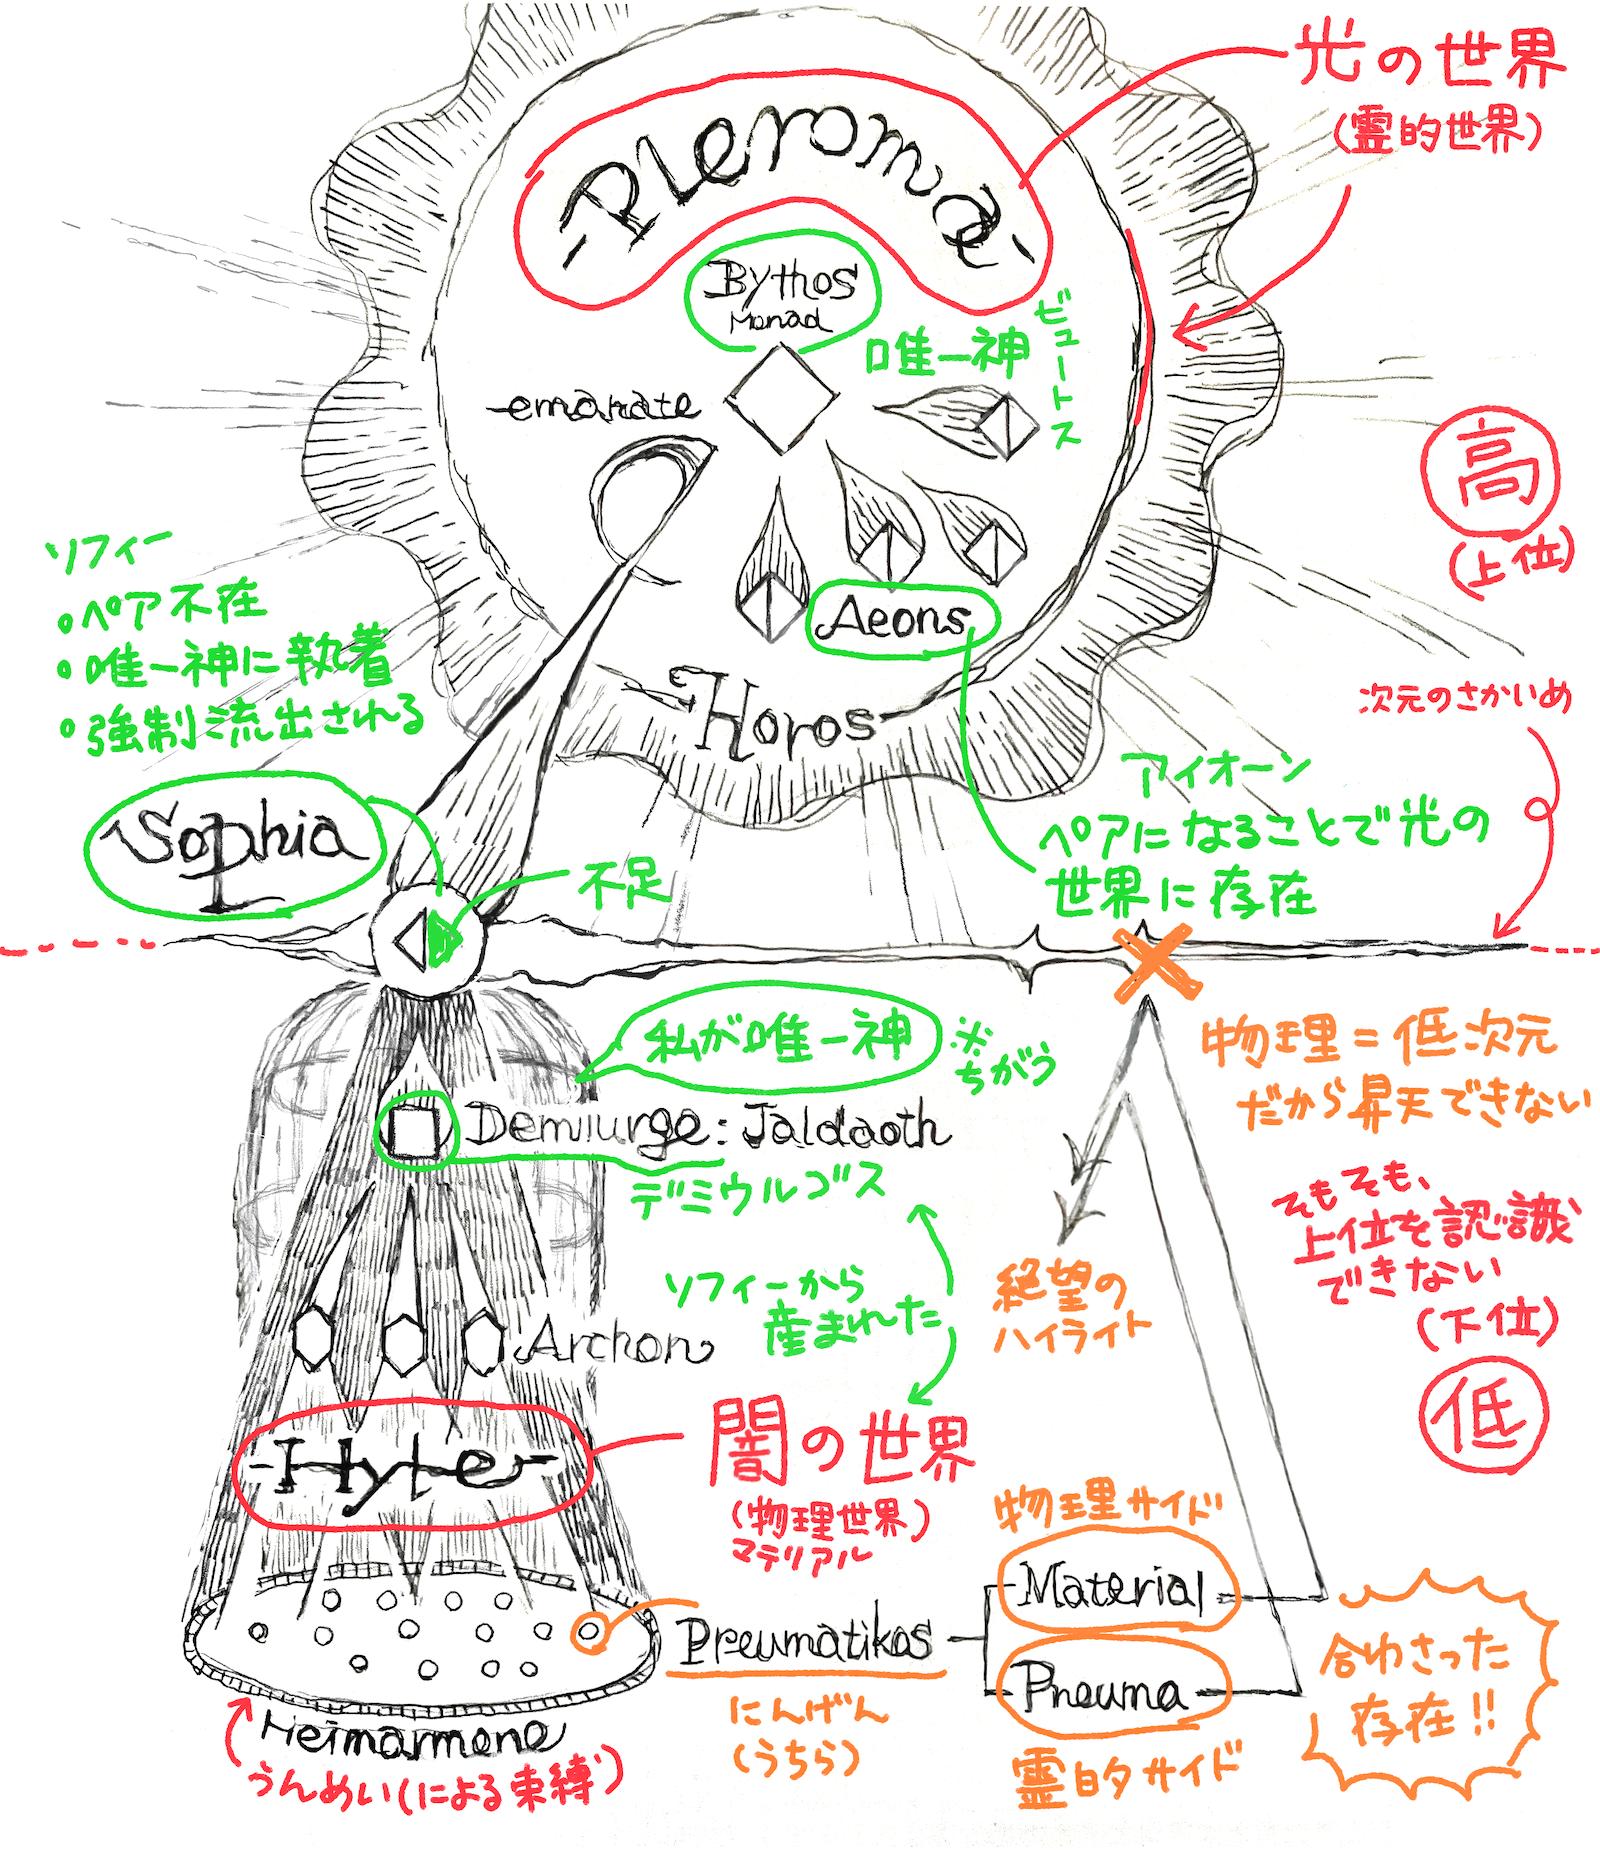 光の世界
(霊的世界)
-Pleroma-
Bythos
Monad
唯一神
ビュートス
emanate
高
(上位)
ソフィー
・ペア不在
・唯一神に執着
・強制流出される
Aeons
-Horos-
次元のさかいめ
アイオーン
ペアになることで光の
世界に存在
Sophia
不足
私が唯一神
※
ちがう
物理=低次元
だから昇天できない
Demiurge: Jaldaoth
デミウルゴス
そもそも、
上位を認識
できない
(下位)
低
ソフィーから
産まれた
絶望の
ハイライト
Archon
-Hyle-
闇の世界
(物理世界)
マテリアル
物理サイド
Material
Pneumatikos
Pneuma
霊的サイド
にんげん
(うちら)
合わさった
存在!!
Heimarmene
うんめい(による束縛)